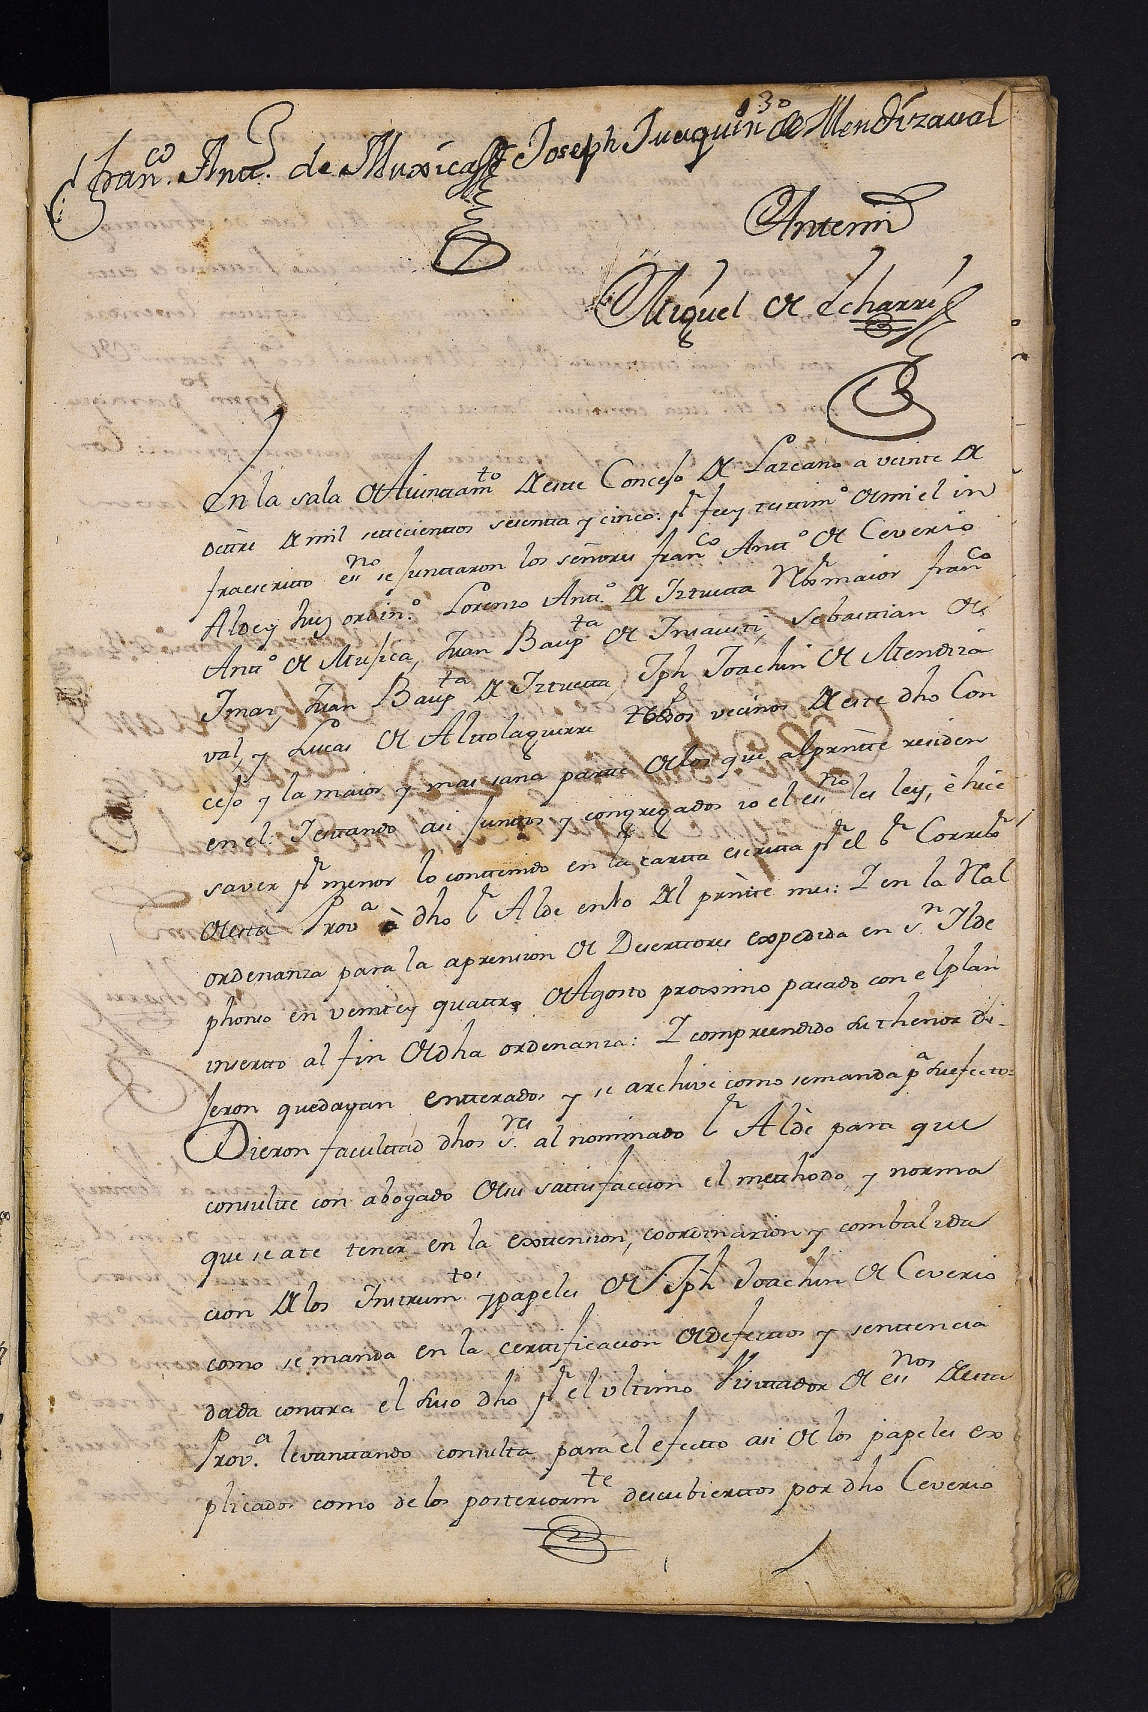 30
Fran.co Antt.o de Muxica Joseph Juaquin de Mendizaval
Antemi
Miguel de Echarri
En la sala de Aiunttam.to de este Concejo de Lazcano a veinte de
octtre de mil settecienttos sesentta y cinco: p.r fee y testtim.o de mi el in
fraescritto ess.no se Junttaron los señores Fran.co Antt.o de Ceverio
Alde y Juez ordin.o Lorenzo Antt.o de Izttuetta Rexr maior Fran.co
Antt.o de Mujica, Juan Baup.ta de Insausti, Sebasttian de
Imaz, Juan Baup.ta de Izttuetta, Jph Joachin de Mendiza
val, y Lucas de Alttolaguirre ttodos vecinos de este dho Con
cejo y la maior y mas sana partte de los que al prñtte residen
en el. I esttando asi Junttos y congregados io el ess.no les ley, è hice
saver p.r menor lo conttenido en la cartta escritta p.r el S.r Correxr
de esta Prov.a à dho S.r Alde en io del prñtte mes: I en la Rl
ordenanza para la aprension de Deserttores expedida en S.n Ilde
phonso en veintte y quattro de Agosto procsimo pasado con el plan
insertto al fin de dha ordenanza: I compreendido su thenor di-
jeron quedavan entterados y se archive como se manda p.a su efecto:
Dieron faculttad dhos S.res al nominado S.r Alde para que
consultte con abogado de su sattisfaccion el metthodo, y norma
que se a de tener en la exttension, coordinazion y combalida
cion de los Instrum.tos y papeles de Jph Joachin de Ceverio
como se manda en la certtificacion de defecttos y senttencia
dada conttra el suso dho p.r el ulttimo Visittador de ess.nos de esta
Prov.a levanttando consultta para el efectto asi de los papeles ex
plicados como de los posteriorm.te descubierttos por dho Ceverio